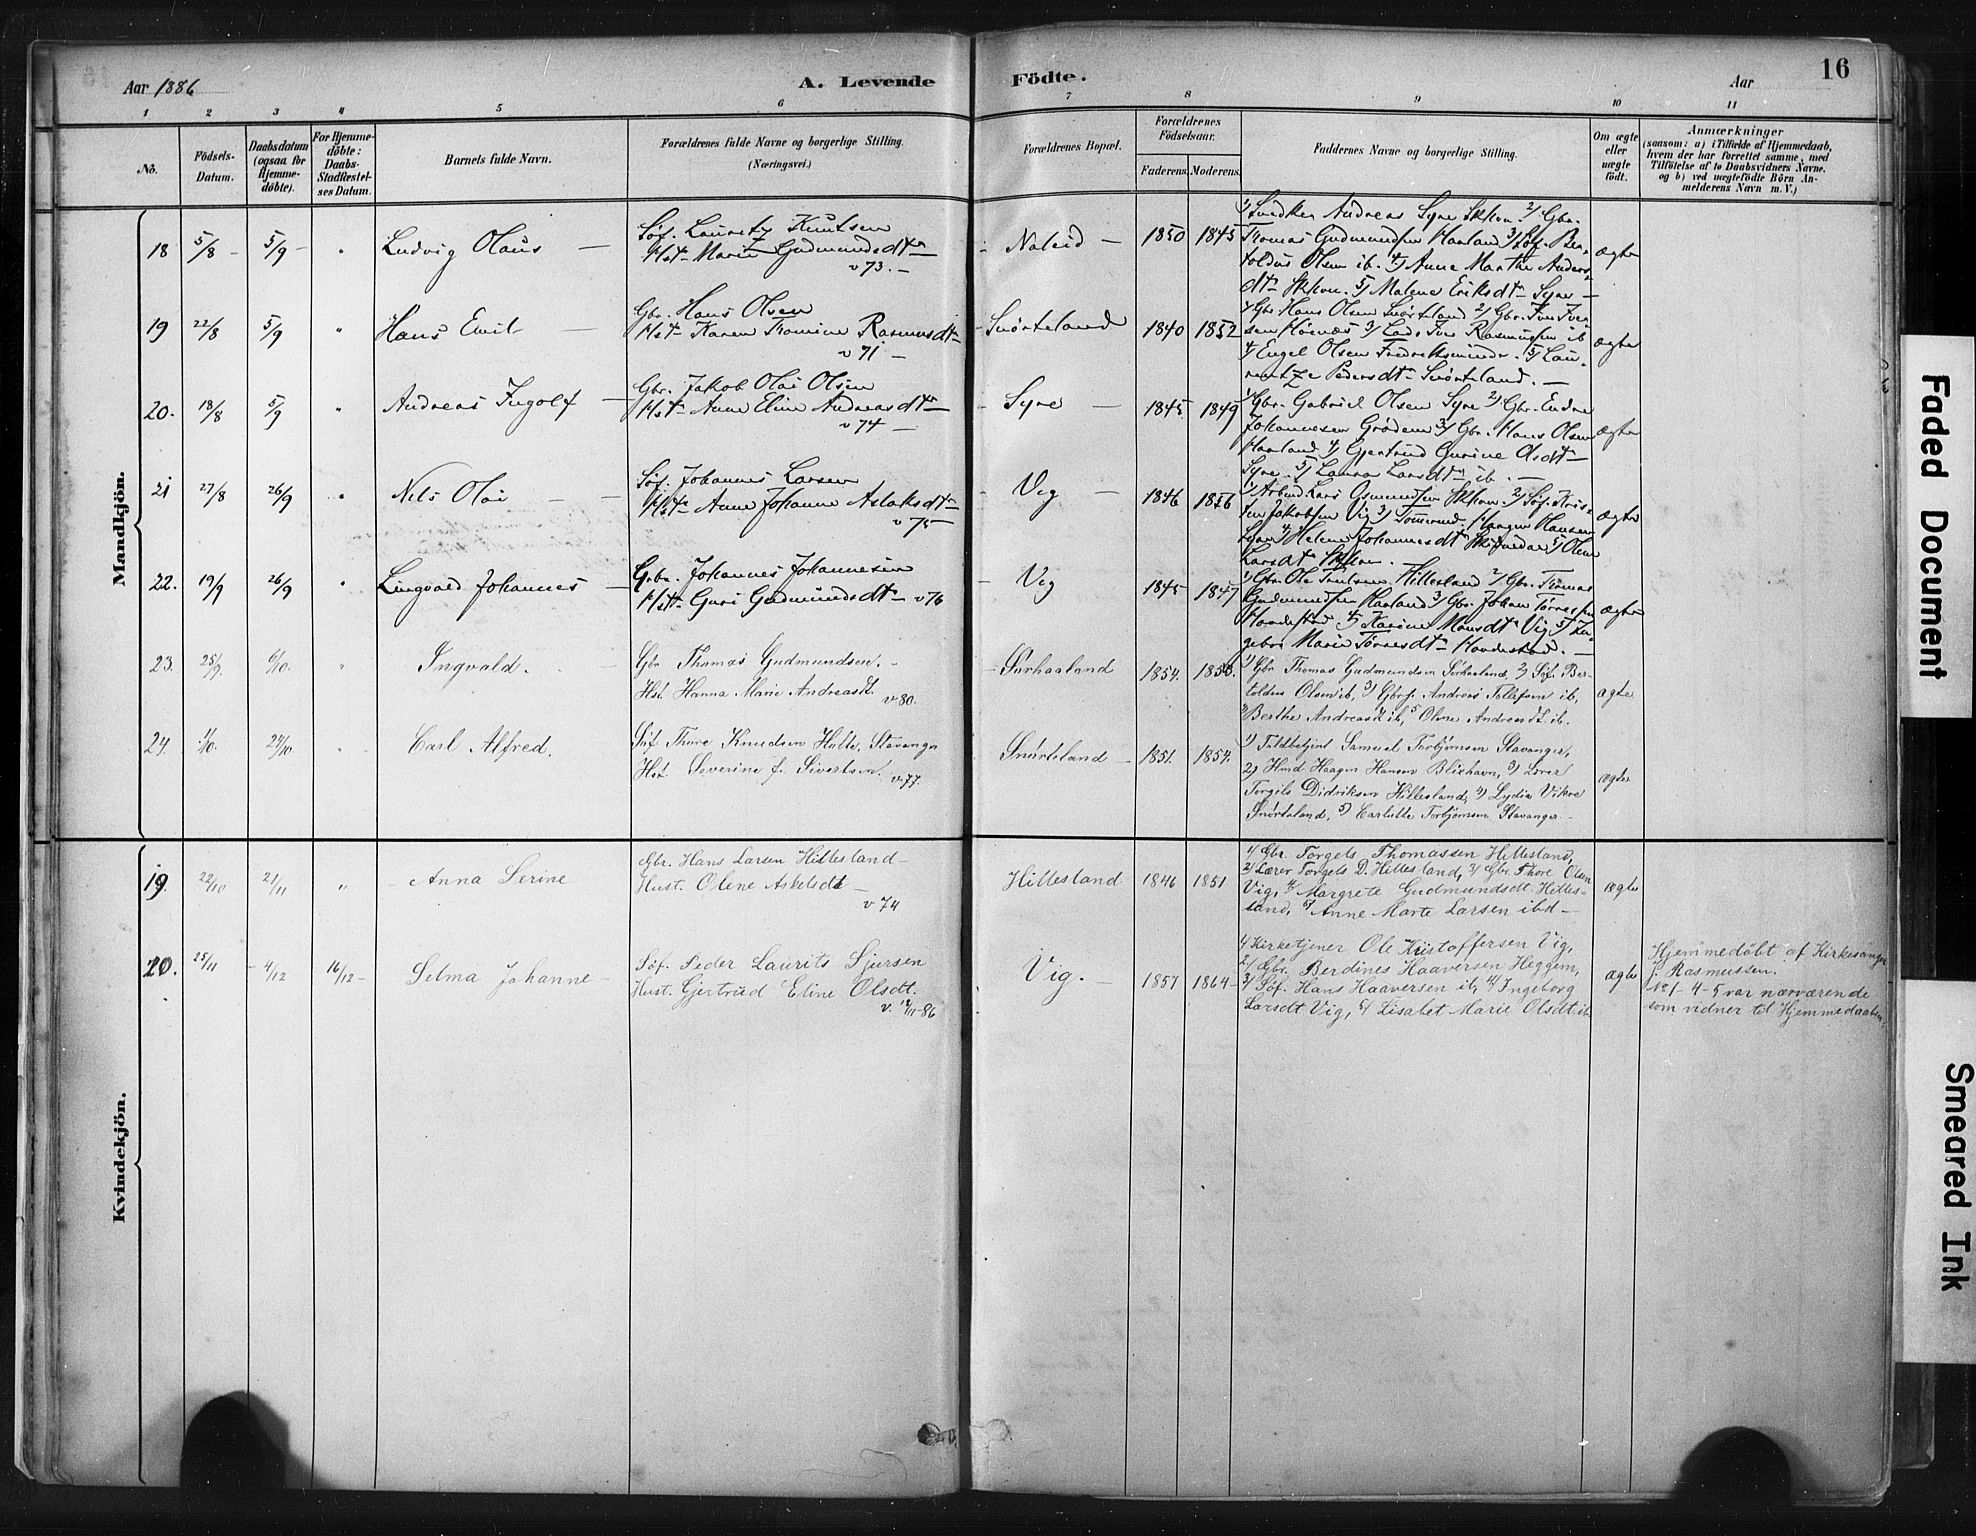 Aar 1886
A. Levende
Födte.
Aar
16
1 2 3 4 5 6 7 8 9 10 11
No.
Födsels-
Datum.
Daabsdatum
(ogsaa for
Hjemme-
döbte).
For Hjemme-
döbte:
Daabs-
Stadfæstel-
ses Datum.
Barnets fulde Navn.
Forældrenes fulde Navne og borgerlige Stilling.
(Næringsvei.)
Forældrenes Bopæl.
Forældrenes
Födselsaar.
Faderens. Moderens.
Faddernes Navne og borgerlige Stilling.
Om ægte
eller
uægte
födt.
Anmærkninger
(saasom: a) i Tilfælde af Hjemmedaab,
hvem der har forrettet samme, med
Tilföielse af to Daabsvidners Navne.
og b) ved uægtefödte Börn An-
melderens Navn m. V.)
Mandkjön.
18 5/8 - 5/9 - " Ludvig Olaus —
Søf. Lauretz Knutsen
Hst. Marie Gudmundsdtr
v 73. -
- Naleid - 1850 1845
1) Snedker Andreas Syre Skhvn 2) Gbr.
Thomas Gudmundsen Haaland 3) Søf. Ber-
toldus Olsen ib. 4) Anne Marthe Anders-
dtr Skhvn. 5) Malene Eriksdtr Syre -
ægte
19 22/8 5/9 " Hans Emil —
Gbr. Hans Olsen
Hst. Karen Tomine Rasmusdtr
v 71 -
- Snørteland 1840 1852
1) Gbr. Hans Olsen Snørteland 2) Gbr. Iver Iver-
sen 3) Iver Rasmussen ib
4) Engel Olsen 5) Lau-
rentze Pedersdtr Snørteland. -
ægte
20. 18/8 5/9 " Andreas Ingolf —
Gbr. Jakob Olai Olsen
Hst. Anne Eline Andreasdtr
v 74 -
- Syre - 1845 1849
1) Gbr. Gabriel Olsen Syre 2) Gbr. Endre
Johannesen Grødem 3) Gbr. Hans Olsen
Haaland 4) Gjertrud Gurine Olsdtr
Syre 5) Laura Larsdtr ib. -
ægte
21 27/8 26/9 " Nels Olai — —
Søf. Johannes Larsen
Hst. Anne Johanne Aslaksdtr
v 75
- Vig - 1846 1856
1) Arbmd Lars Osmundsen Skhvn 2) Søf. Kris-
ten Jakobsen Vig 3) Tømrmd. Haagen Hansen
4) Helene Johannesdtr 5) Olene
Larsdt Skhvn.
ægte
22. 19/9 26/9 " Lingvald Johannes —
Gbr. Johannes Johannesen
Hst. Guri Gudmundsdtr v 76
- Vig 1845 1847
1) Gbr. Ole Hillesland 2) Gbr. Thomas
Gudmundsen Haaland 3) Gbr. Johan Torressen
4) Karine Monsdtr Vig 5) In-
geborg Marie Torresdtr -
ægte
23. 25/9 6/10. " Ingvald. —
Gbr Thomas Gudmundsen. -
Hst. Hanna Marie Andreasdt.
v 80.
- Sørhaaland 1854. 1850.
1) Gbr. Thomas Gudmundsen Sørhaaland, 2) Søf. Ber-
toldus Olsen ib, 3) Andreas Tollefsen ib,
4) Berthe Andreasdt ib, 5 Olene Andreasdt ib.
ægte
24. 1/10. 24/10 " Carl Alfred.
Søf Thore Knudsen Stavanger
Hst. Severine f. Sivertsen. v 77.
Snørteland - 1851. 1854.
1) Toldbetjent Samuel Torbjørnsen Stavanger,
2) Hmd Haagen Hansen Blixhavn, 3) Lærer
Torgils Didriksen Hillesland, 4) Lydia Vikre
Snørteland, 5) Carlotte Torbjørnsen Stavanger -
ægte
Kvindekjön.
19. 22/10 21/11 " - Anna Serine
Gbr. Hans Larsen Hillesland -
Hust. Olene Askelsdt -
v 74
Hillesland 1846 1851
1/ Gbr. Torgels Thomassen Hillesland,
2/ Lærer Torgels D. Hillesland, 3/ Gbr. Thore Olsen
Vig, 4/ Margrete Gudmundsdt Hilles-
land, 5/ Anne Marte Larsen ibd -
ægte
20. 25/11 - 4/12 16/12 - Selma Johanne -
Søf. Peder Laurits Sjursen
Hust. Gjertrud Eline Olsdt.
v. 18/11-86
Vig. - 1857 1864 -
1/ Kirketjener Ole Kristoffersen Vig,
2/ Gbr. Berdines Haaversen Heggem,
3/ Søf. Hans Haaversen ib, 4/ Ingeborg
Larsdt Vig, 5/ Lisabet Marie Olsdt ib
ægte
Hjemmedøbt af Kirkesanger
J. Rasmussen.
No 1-4-5 var nærværende
som vidner til Hjemmedaaben.
Faded Document
Smeared Ink